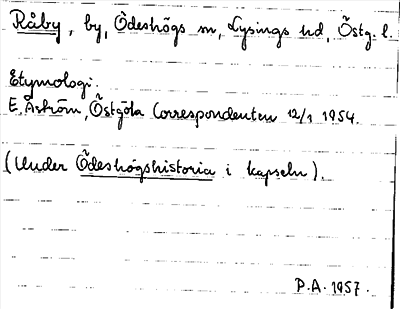 Råby, by, Ödeshögs sn, Lysings hd, Östg. l.
Etymologi.
E. Åström, Östgöta Correspondenten 12/1 1954.
(Under Ödeshögshistoria i kapseln).
P.A. 1957.